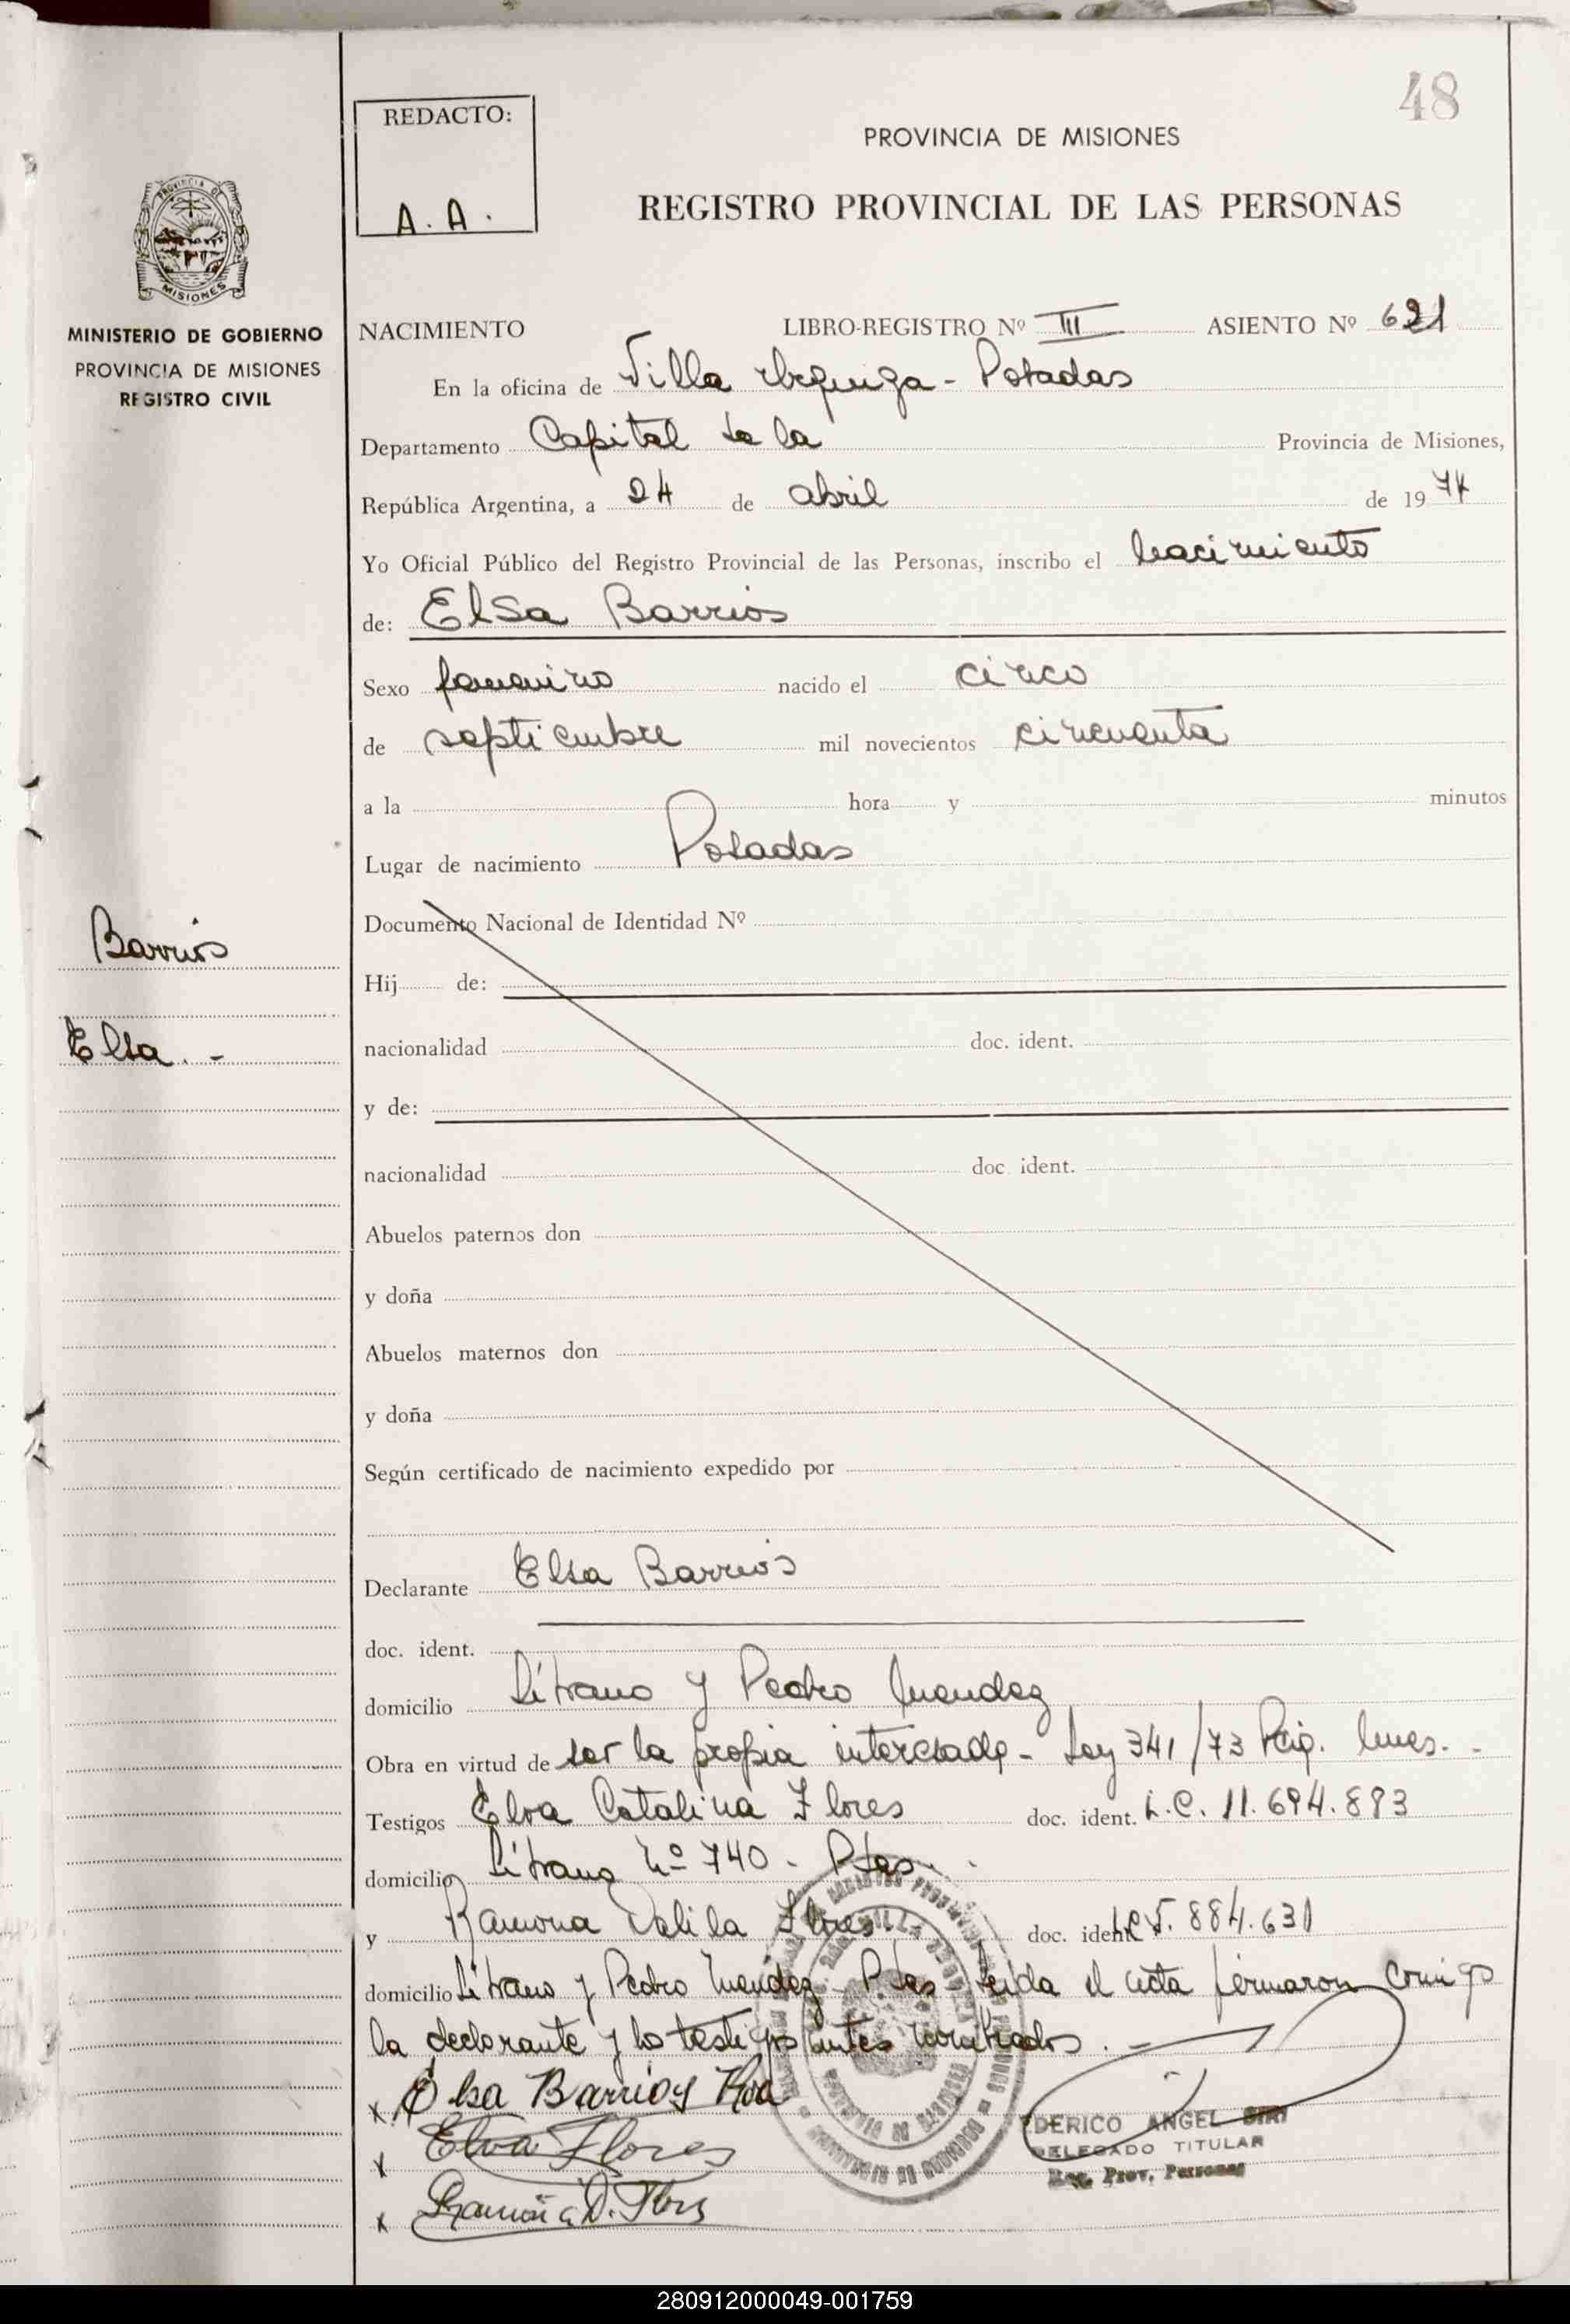 48
REDACTO:
A. A.
PROVINCIA DE MISIONES
REGISTRO PROVINCIAL DE LAS PERSONAS
PROVINCIA DE
MISIONES
MINISTERIO DE GOBIERNO
PROVINCIA DE MISIONES
REGISTRO CIVIL
NACIMIENTO LIBRO-REGISTRO Nº III ASIENTO Nº 621
En la oficina de Villa Urquiza - Posadas
Departamento Capital de la Provincia de Misiones,
República Argentina, a 24 de abril de 1974
Yo Oficial Público del Registro Provincial de las Personas, inscribo el nacimiento
de: Elsa Barrios
Sexo femenino nacido el cinco
de septiembre mil novecientos cincuenta
a la hora y minutos
Lugar de nacimiento Posadas
Documento Nacional de Identidad Nº
Barrios
Elsa. -
Hij de:
nacionalidad doc. ident.
y de:
nacionalidad doc. ident.
Abuelos paternos don
y doña
Abuelos maternos don
y doña
Según certificado de nacimiento expedido por
Declarante Elsa Barrios
doc. ident.
domicilio y Pedro Mendez
Obra en virtud de ser la propia interesada - Ley 341/73
Testigos Elva Catalina Flores doc. ident. L.C. 11.694.893
domicilio Nº 740 - Pdas.
y Ramona Dalila Flores. doc. ident. 884.631
domicilio y Pedro Mendez - Pdas leida el acta firmaron conmigo
la declarante y los testigos antes nombrados. -
x Elsa Barrios
x Elva Flores
x Ramona D. Flores
ANGEL SIRI
DELEGADO TITULAR
Reg. Prov. Personas
280912000049-001759